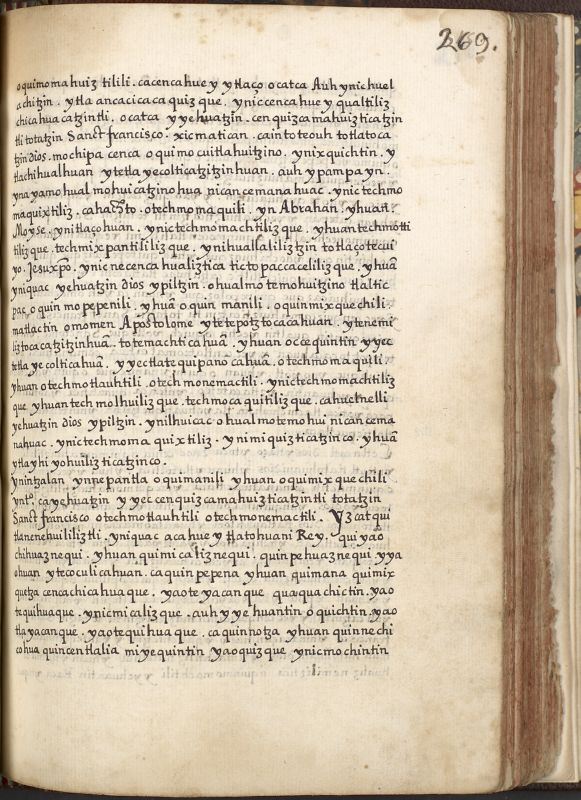 269.
o quimo ma huiz tilili. ca cenca hue y ytlaço o catca Auh ynic huel
a chitzin. ytla anca cica ca quiz que. ynic cenca hue y qualtiliz
chica hua ca tzintli. o catca y ye hua tzin. cen quiz ca ma huiz ti ca tzin
tli totatzin Sanct francisco. xic ma tican. ca in to teouh to tlatoca
tzin dios. mo chipa cenca o qui mo cuitla huitzino. yn ix quich tin. y
tla chi hual huan y te tla ye col ti ca tzi tzin huan. auh y pam pa yn.
yn a ya mo hual mo hui ca tzino hua nican cemana huac. ynic techmo
ma quix tiliz. o tech mo ma quili. yn Abrahan. yhuan.
Moyse. yni tlaço huan. ynic tech mo mach tiliz que. yhuan tech mo
tiliz que. tech mix pan tili liz que. yni huallali liz tzin to tlaço te cui
yo. Jesu xp̃o. ynic ne cenca hualiz tica tic to pac ca celi liz que. yhuã
yniquac ye hua tzin dios y piltzin. o hual mo temo hui tzino tlal tic
pac o quin mo pe pe nili. yhuã o quin ma nili. o quin mix que chili
matlac tin omomen Apostolome y te te po tz to ca ca huan. y te ne mi
liz to ca ca tzi tzin huã. to te mach ti ca huã. yhuan oc ce quin tin y yec
te tla ye col ti ca huã. y yec tla te qui pano ca huã. o tech mo ma quili
yhuan o tech mo tlauh tili. o tech mo ne mac tili. ynic tech mo mach ti liz
que yhuan tech mol hui liz que. tech mo ca qui ti liz que. ca huel nelli
ye hua tzin dios y piltzin. ynil hui cac o hual mo te mo hui nican cema
na huac. ynic tech mo ma qui x ti liz. y ni mi quiz ti ca tzin co. yhuã
y tlay hi yo hui liz ti ca tzin co.
yn in tzalan yn ne pan tla o qui ma nili yhuan o qui mix que chili
ca ye hua tzin y yec cen quiz ca ma huiz ti ca tzin tli to ta tzin
Sanct francisco o tech mo tlauh tili o tech mo ne mac tili. Yz cat qui
tla ne ne hui li liz tli. yni quac a ca hue y tla to hua ni Rey. qui yao
chi huaz ne qui. yhuan qui mi ca liz ne qui. quin pe huaz ne qui y ya
o huan y te co cu li ca huan. ca quin pe pe na yhuan qui ma na qui mix
que tza cen ca chi ca hua que. yao te ya can que qua qua chic tin. yao
te qui hua que. ynic mi ca liz que. auh y ye huan tin o quich tin. yao
tla ya can que. yao te qui hua que. ca quin no tza yhuan quin ne chi
co hua quin cen tla lia mi ye quin tin yao quiz que ynic mo chin tin